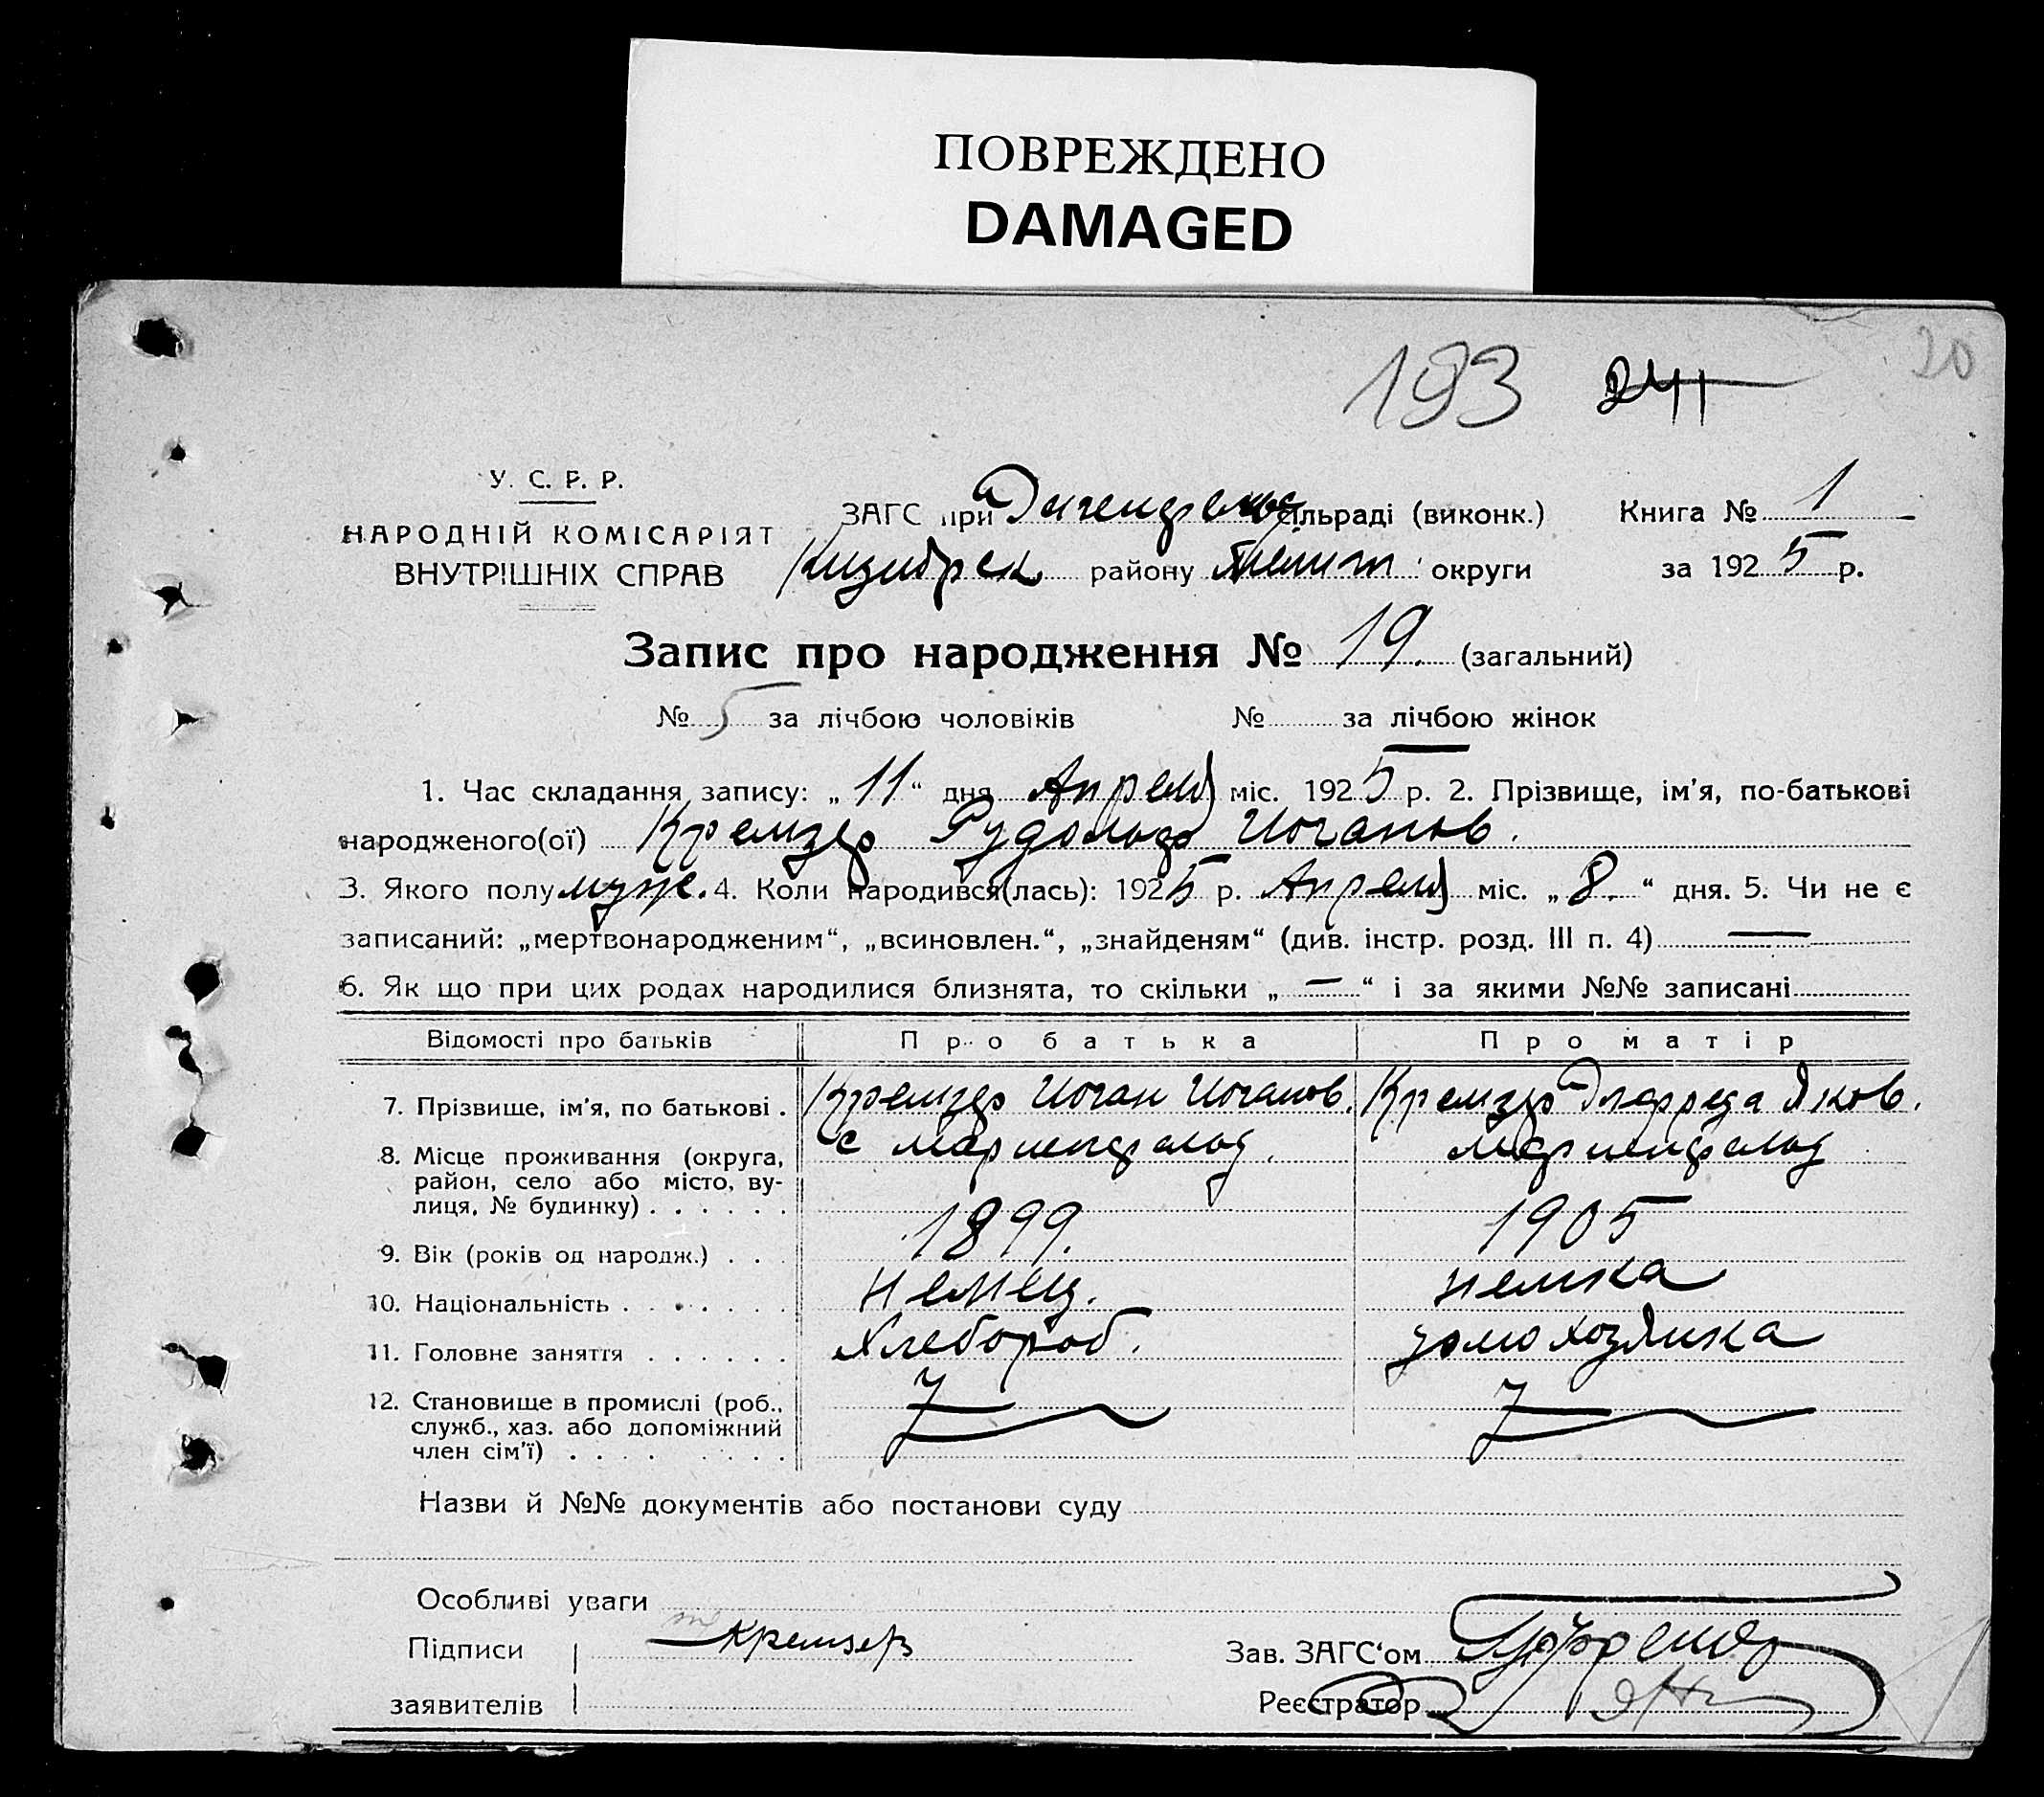 ПОВРЕЖДЕНО
DAMAGED
20
193 241
У. С. Р. Р.
НАРОДНІЙ КОМІСАРІЯТ
ВНУТРІШНІХ СПРАВ
ЗАГС при сільраді (виконк.) Книга № 1
району округи за 1925 р.
Запис про народження № 19. (загальний)
№ 5 за лічбою чоловіків № за лічбою жінок
1. Час складання запису: „11“ дня Апреля міс. 1925 р. 2. Прізвище, ім'я, по-батькові
народженого(ої) Кремзер Рудольф Иоганов.
3. Якого полу муж. 4. Коли народився(лась): 1925 р. Апреля міс. „8.“ дня. 5. Чи не є
записаний: „мертвонародженим“, „всиновлен.“, „знайденям“ (див. інстр. розд. III п. 4) —
6. Як що при цих родах народилися близнята, то скільки „—“ і за якими №№ записані
Відомості про батьків Про батька Про матір
7. Прізвище, ім'я, по батькові . Кремзер Иоган Иоганов. Кремзер Яков.
8. Місце проживання (округа, район, село або місто, вулиця, № будинку) . . . . . . с Мариенфельд. Мариенфельд
9. Вік (років од народж.) . . . 1899. 1905
10. Національність . . . . . . . немец. немка
11. Головне заняття . . . . . . Хлебороб. домохозяйка
12. Становище в промислі (роб., служб., хаз. або допоміжний член сім'ї) . . . . . . . .
Назви й №№ документів або постанови суду
Особливі уваги
Підписи Кремзер Зав. ЗАГС'ом
заявителів Реєстратор